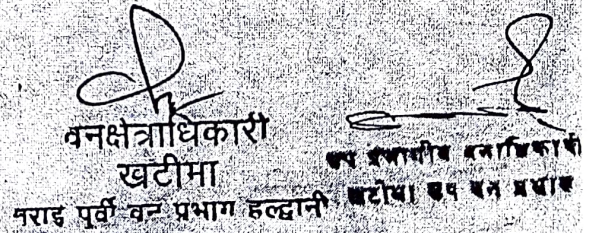 वनक्षेत्राधिकारी
खटीमा
तराई पूर्वी वन प्रभाग हल्द्वानी
उप प्रभागीय वनाधिकारी
खटीमा उप वन प्रभाग